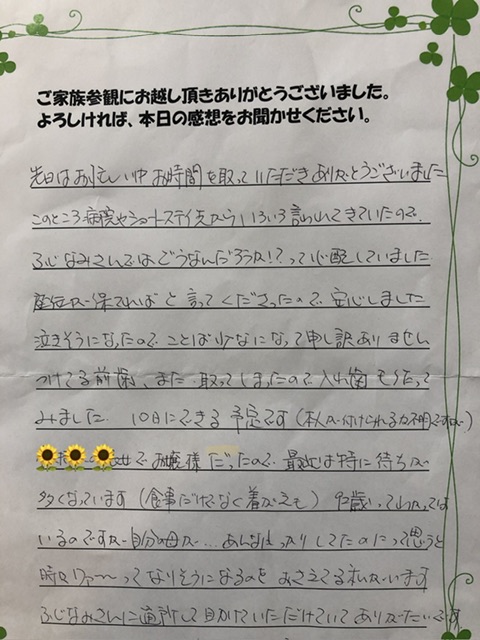 ご家族参観にお越し頂きありがとうございました。
よろしければ、本日の感想をお聞かせください。
先日はお忙しい中お時間を取っていただきありがとうございました
このところ病院やショートステイ先からいろいろ言われてきていたので、
ふじなみさんではどうなんだろうか!?って心配していました
座位が保てればと言ってくださったので安心しました
泣きそうになったのでことば少なになって申し訳ありません
つけてる前歯、また取ってしまったので入れ歯もうたって
みました. 10日にできる予定です(本人が付けられるか不明ですが)
女でお嬢様だったので最近は特に待ちが
多くなっています(食事だけでなく着がえも) 92歳ってわかっては
いるのですが自分の母が…あんなにしっかりしてたのにって思うと
時々ワァ〜ってなりそうになるのをおさえてる私がいます
ふじなみさんに通所して助けていただけていてありがたいです